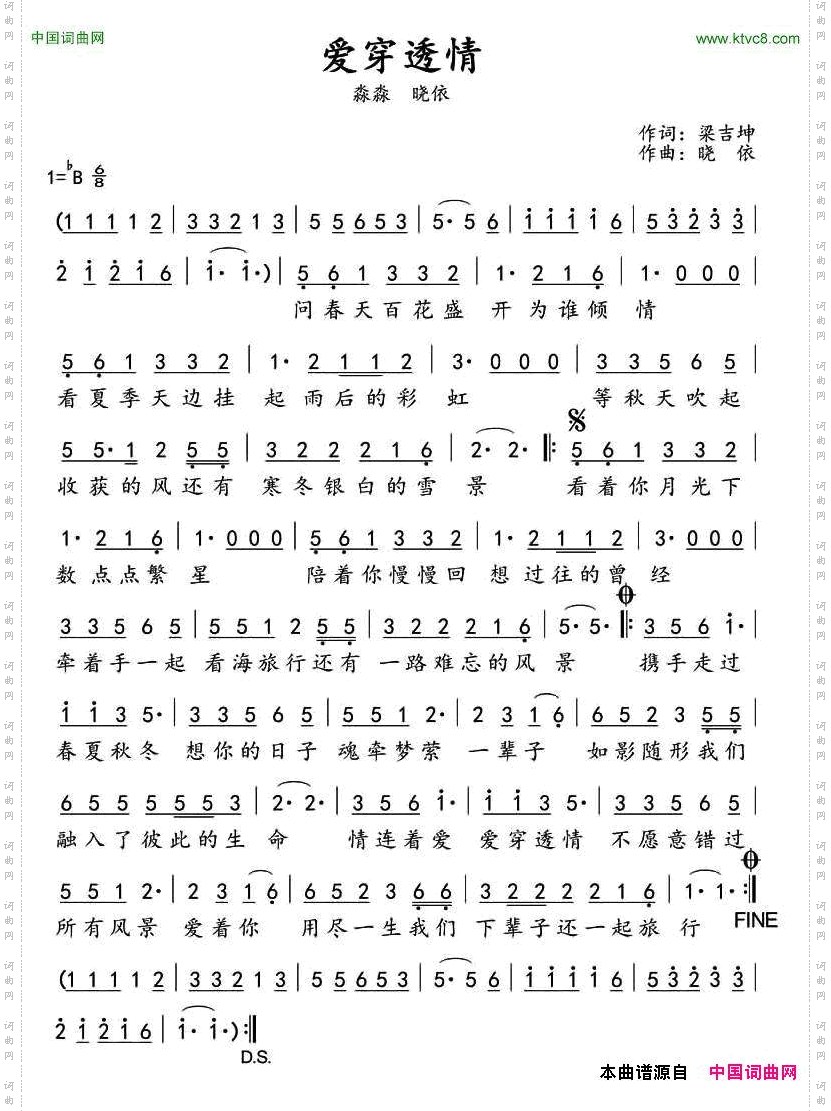 中国词曲网 www.ktvc8.com
爱穿透情
淼淼 晓依
作词：梁吉坤
作曲：晓 依
1=♭B 6/8
(1 1 1 1 2 | 3 3 2 1 3 | 5 5 6 5 3 | 5· 5 6 | i i i i 6 | 5 3 2 3 3 |
2 i 2 i 6 | i· i·) | 5 6 1 3 3 2 | 1· 2 1 6 | 1· 0 0 0 |
问春天百花盛 开为谁倾 情
5 6 1 3 3 2 | 1· 2 1 1 2 | 3· 0 0 0 | 3 3 5 6 5 |
看夏季天边挂 起雨后的彩 虹 等秋天吹起
5 5· 1 2 5 5 | 3 2 2 2 1 6 | 2· 2· |: 5 6 1 3 3 2 |
收获的风还有 寒冬银白的雪 景 看着你月光下
1· 2 1 6 | 1· 0 0 0 | 5 6 1 3 3 2 | 1· 2 1 1 2 | 3· 0 0 0 |
数点点繁 星 陪着你慢慢回 想过往的曾 经
3 3 5 6 5 | 5 5 1 2 5 5 | 3 2 2 2 1 6 | 5· 5· |: 3 5 6 i· |
牵着手一起 看海旅行还有 一路难忘的风 景 携手走过
i i 3 5· | 3 3 5 6 5 | 5 5 1 2· | 2 3 1 6 | 6 5 2 3 5 5 |
春夏秋冬 想你的日子 魂牵梦萦 一辈子 如影随形我们
6 5 5 5 5 3 | 2· 2· | 3 5 6 i· | i i 3 5· | 3 3 5 6 5 |
融入了彼此的生 命 情连着爱 爱穿透情 不愿意错过
5 5 1 2· | 2 3 1 6 | 6 5 2 3 6 6 | 3 2 2 2 1 6 | 1· 1· :|
所有风景 爱着你 用尽一生我们 下辈子还一起旅 行 FINE
(1 1 1 1 2 | 3 3 2 1 3 | 5 5 6 5 3 | 5· 5 6 | i i i i 6 | 5 3 2 3 3 |
2 i 2 i 6 | i· i·) :|
D.S.
本曲谱源自 中国词曲网